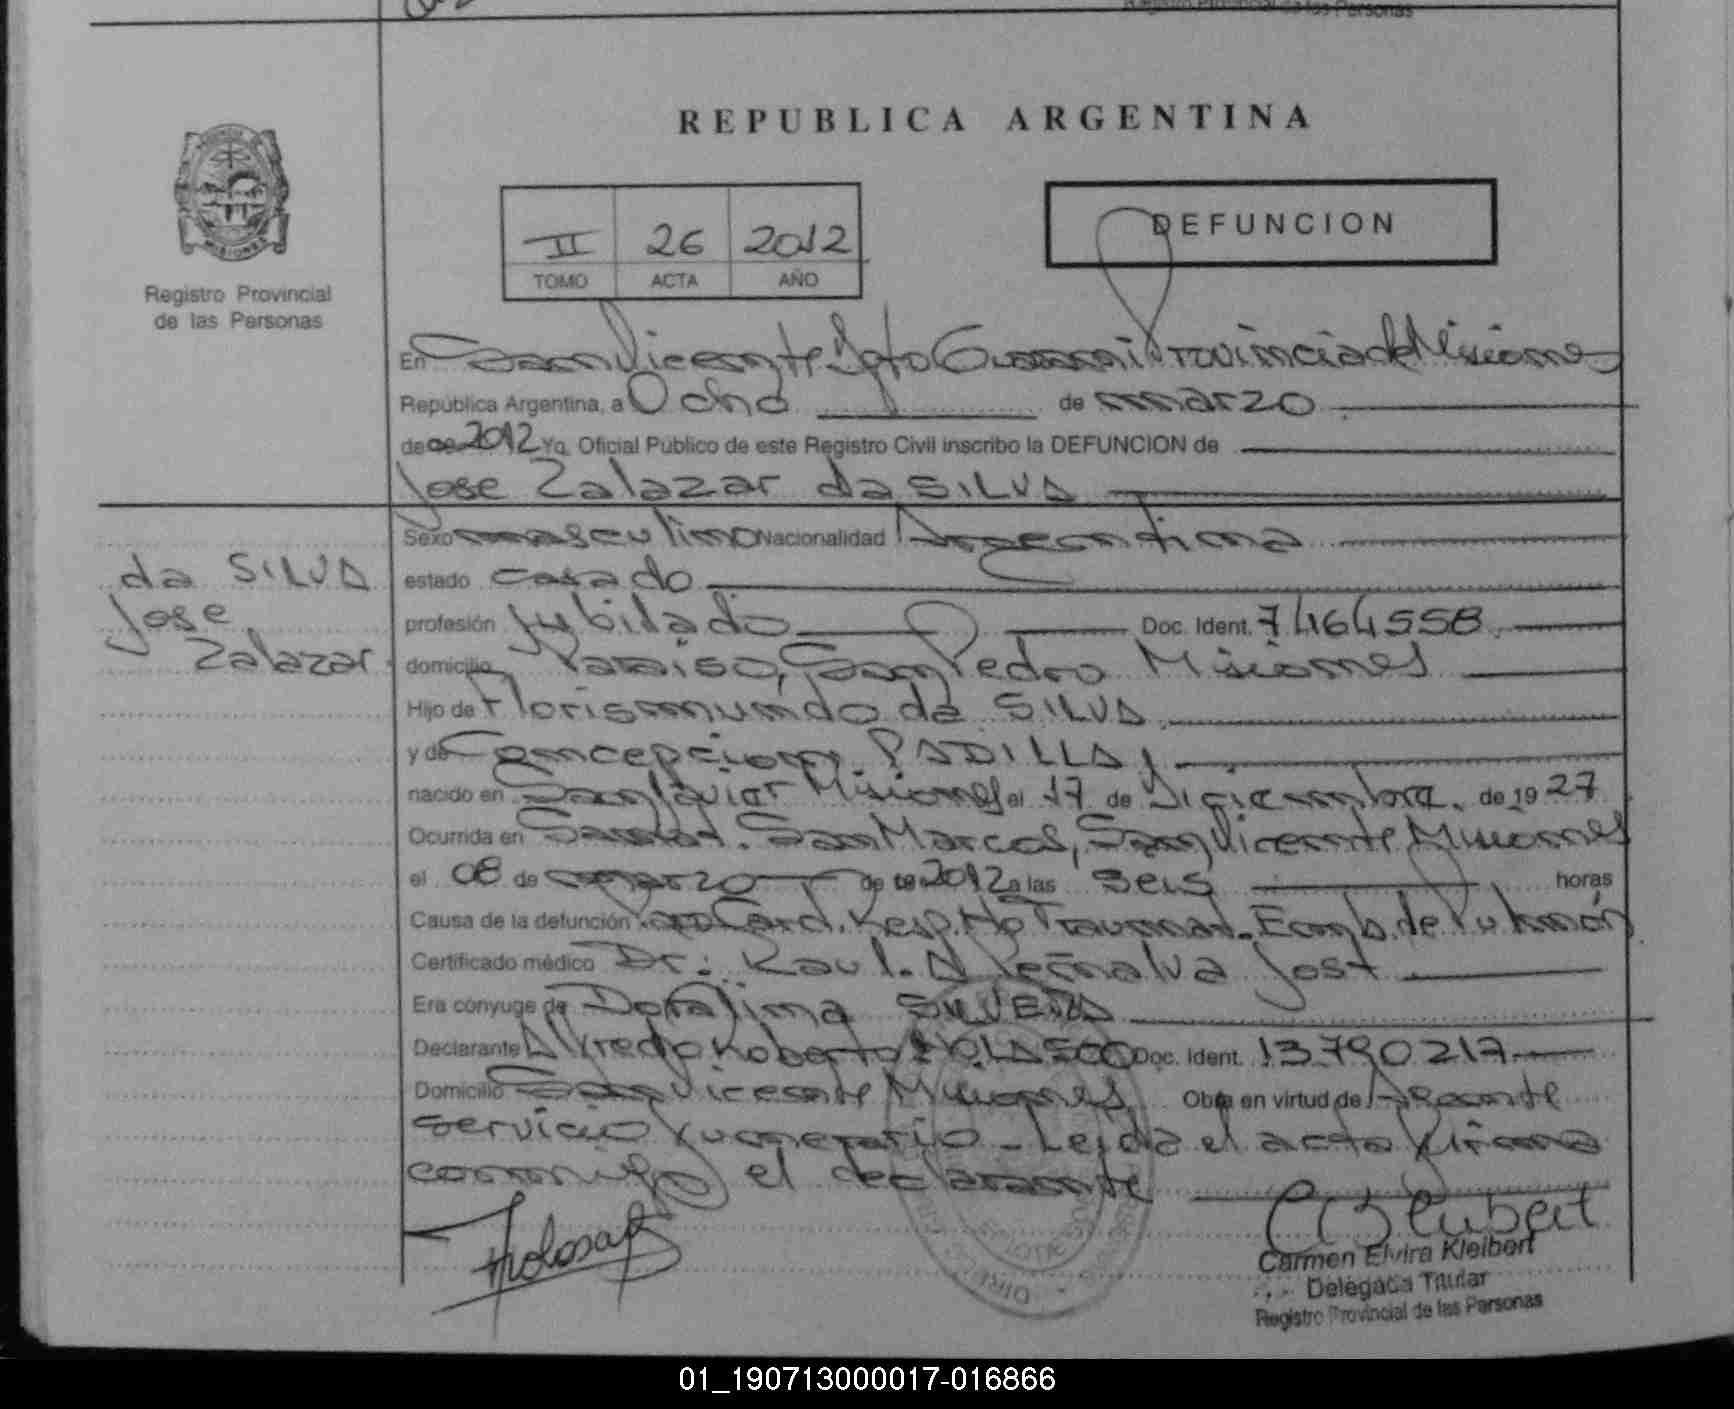 Registro Provincial de las Personas
REPUBLICA ARGENTINA
MISIONES
Registro Provincial
de las Personas
II 26 2012
TOMO ACTA AÑO
DEFUNCION
En San Vicente Dpto Guarani Provincia de Misiones
República Argentina, a Ocho de marzo
de 2012 Yo, Oficial Público de este Registro Civil inscribo la DEFUNCION de
Jose Zalazar da SILVA
da SILVA
Jose
Zalazar
Sexo masculino Nacionalidad Argentina
estado casado
profesión Jubilado Doc. Ident. 7464558
domicilio Paraiso, San Pedro Misiones
Hijo de Florismundo da SILVA
y de Concepcion PADILLA
nacido en San Javier Misiones el 17 de Diciembre de 19 27
Ocurrida en Sanat. San Marcos, San Vicente Misiones
el 08 de marzo de 2012 a las seis horas
Causa de la defunción Paro Card. Resp. No Traumat. de Pulmón
Certificado médico Dr. Raul. A Peñalva Jost
Era cónyuge de Doralina SILVERA
Declarante Alfredo Roberto Doc. Ident. 13790217
Domicilio San Vicente Misiones Obra en virtud de Agente
servicio funerario - Leida el acta firma
conmigo el declarante
Carmen Elvira Kleibert
Delegada Titular
Registro Provincial de las Personas
01_190713000017-016866